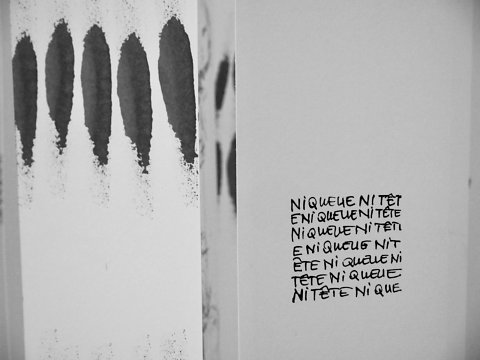 NI QUEUE NI TÊT
E NI QUEUE NI TÊTE
NI QUEUE NI TÊT
E NI QUEUE NI T
ÊTE NI QUEUE NI
TÊTE NI QUEUE
NI TÊTE NI QUE